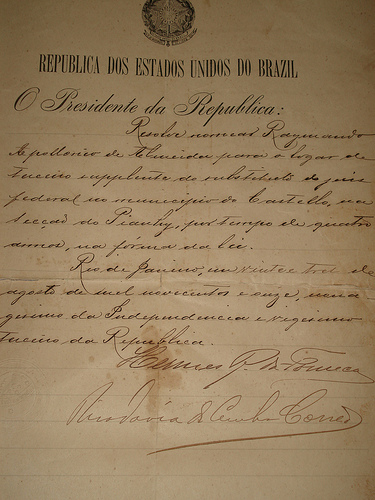 REPUBLICA DOS ESTADOS UNIDOS DO BRAZIL
O Presidente da Republica:
Resolve nomear Raymundo
Apollonio de Almeida para o logar de
terceiro supplente do substituto do juiz
federal no municipio do Castello, na
secção do Piauhy, por tempo de quatro
annos, na forma da lei.
Rio de Janeiro, em vinte e tres de
agosto de mil novecentos e onze, nona
gesimo da Independencia e vigesimo
terceiro da Republica.
Hermes R. da Fonseca
Rivadavia da Cunha Corrêa